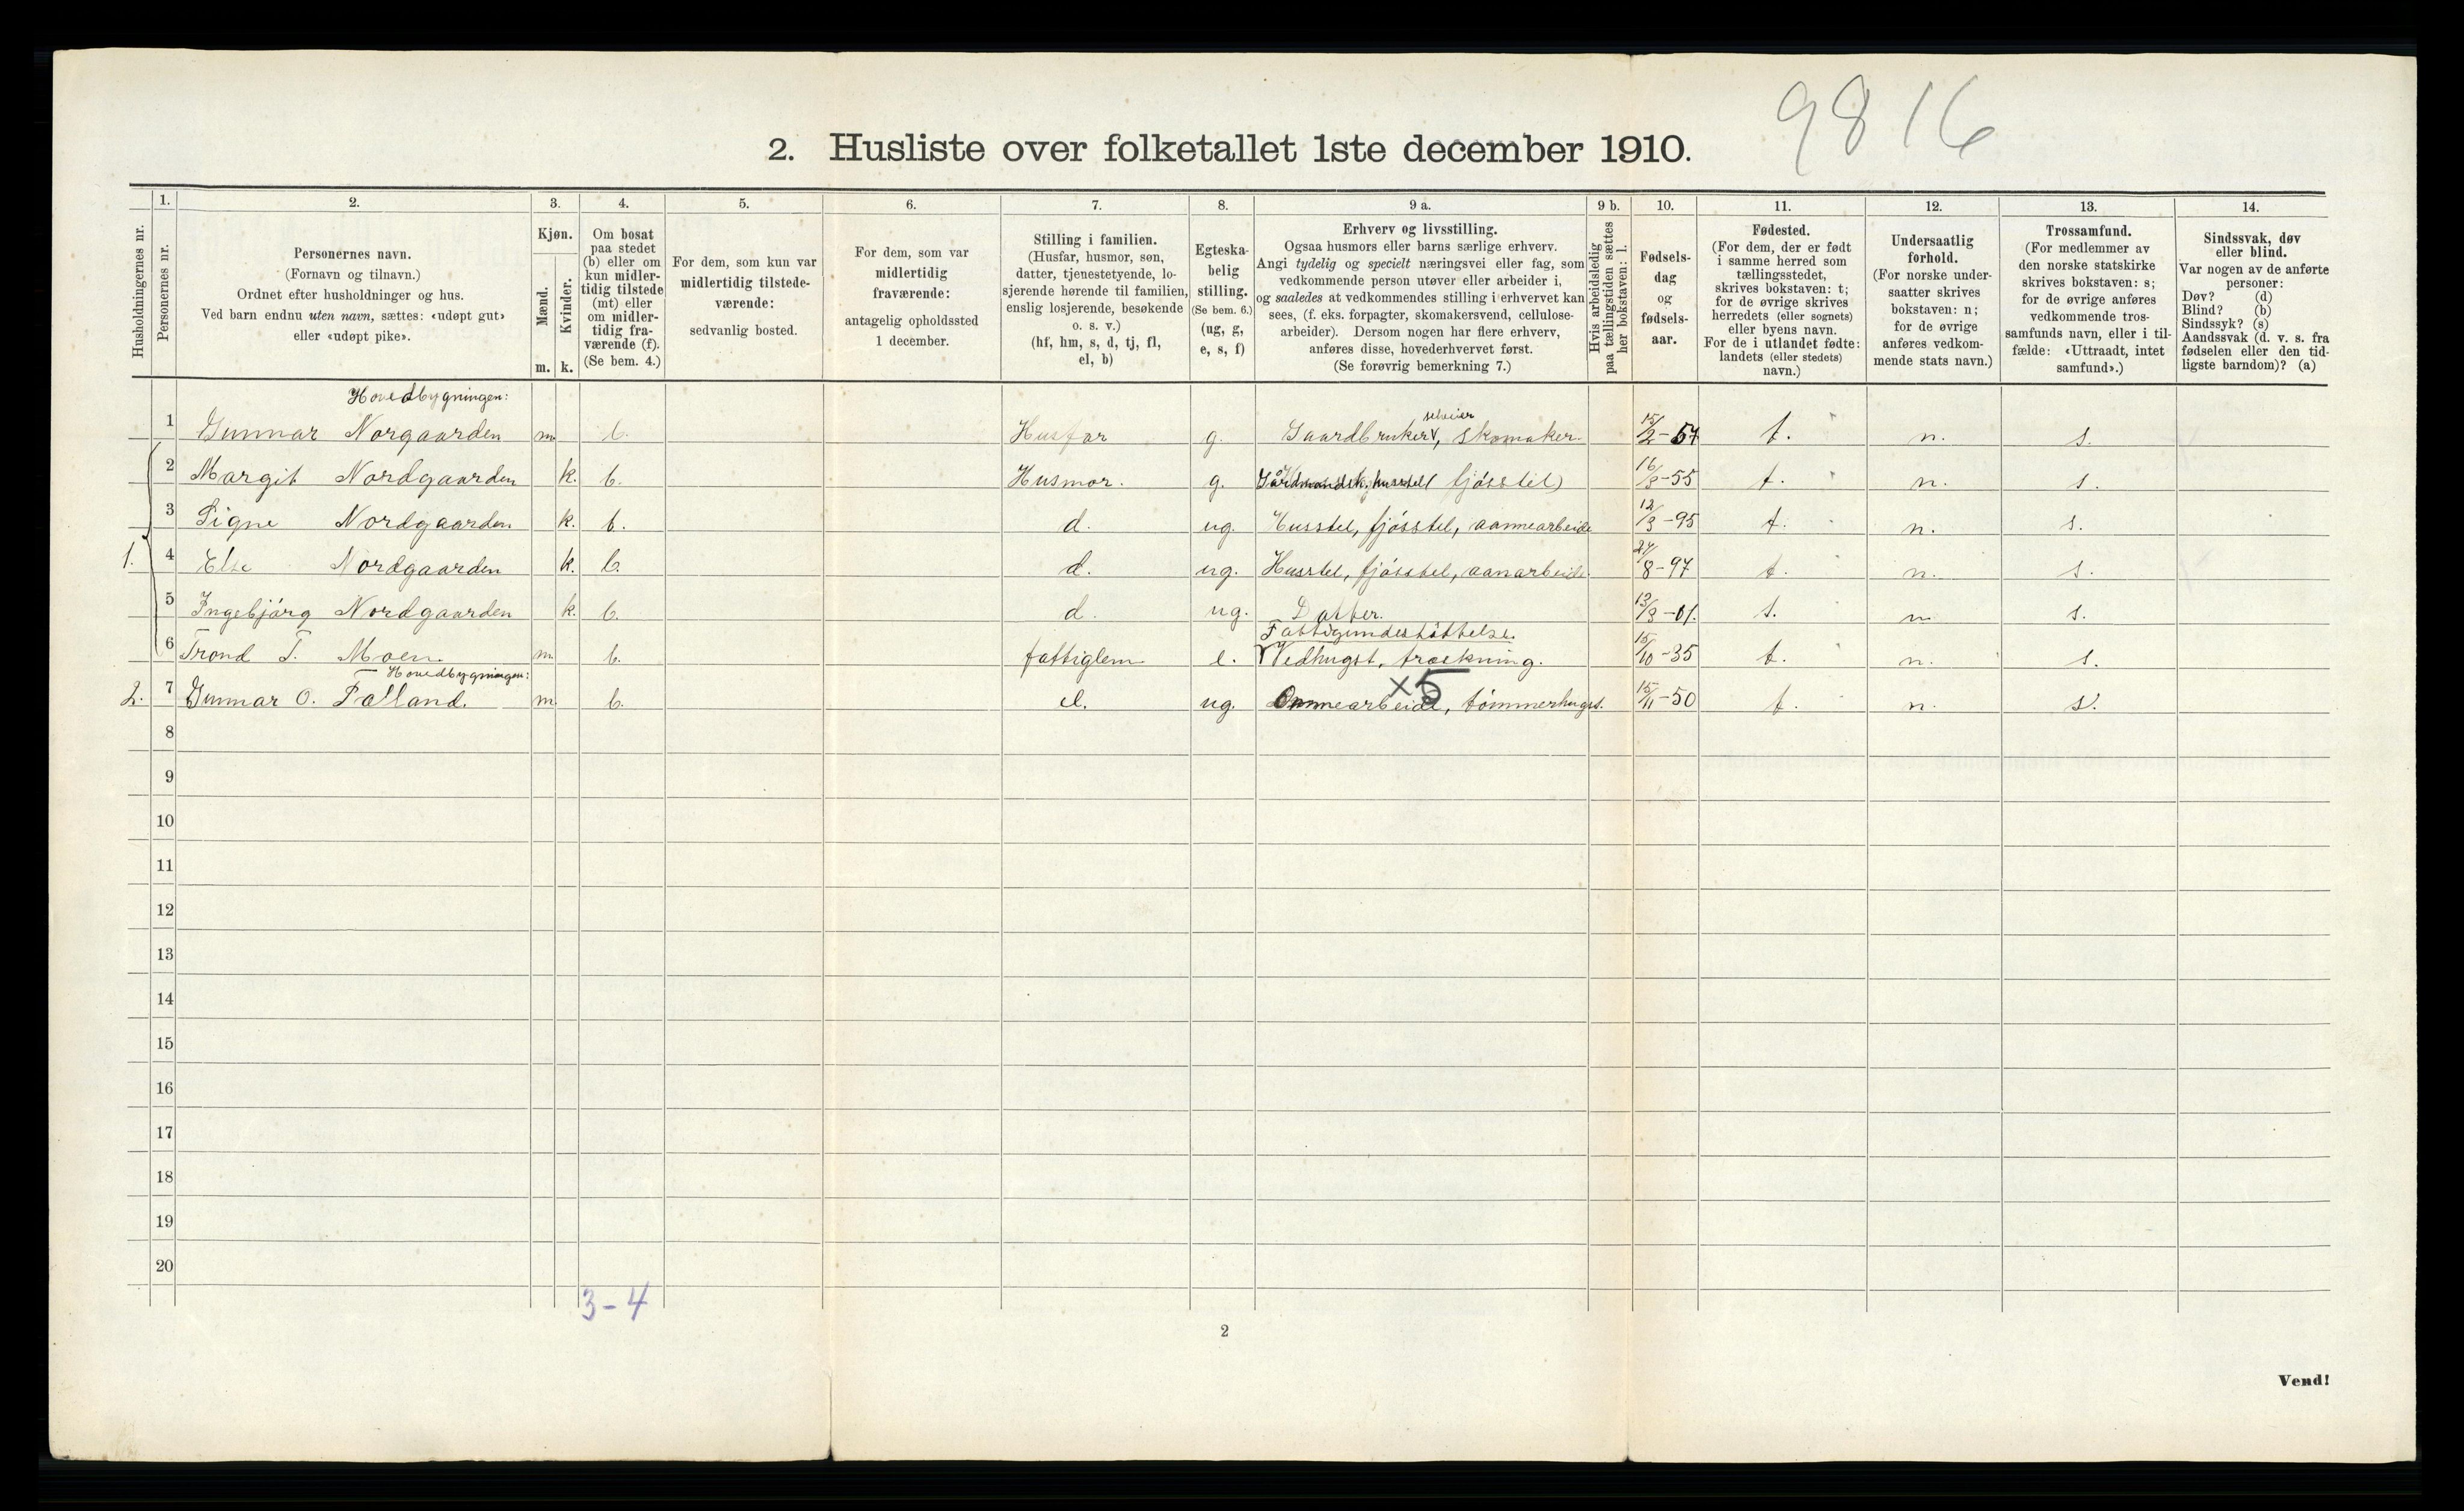 9816
2. Husliste over folketallet 1ste december 1910.
Husholdningernes nr.
1. Personernes nr.
2. Personernes navn.
(Fornavn og tilnavn.)
Ordnet efter husholdninger og hus.
Ved barn endnu uten navn, sættes: «udøpt gut»
eller «udøpt pike».
3. Kjøn.
Mænd. Kvinder.
m. k.
4. Om bosat
paa stedet
(b) eller om
kun midler-
tidig tilstede
(mt) eller
om midler-
tidig fra-
værende (f).
(Se bem. 4.)
5. For dem, som kun var
midlertidig tilstede-
værende:
sedvanlig bosted.
6. For dem, som var
midlertidig
fraværende:
antagelig opholdssted
1 december.
7. Stilling i familien.
(Husfar, husmor, søn,
datter, tjenestetyende, lo-
sjerende hørende til familien,
enslig losjerende, besøkende
o. s. v.)
(hf, hm, s, d, tj, fl,
el, b)
8. Egteska-
belig
stilling.
(Se bem. 6.)
(ug, g,
e, s, f)
9 a. Erhverv og livsstilling.
Ogsaa husmors eller barns særlige erhverv.
Angi tydelig og specielt næringsvei eller fag, som
vedkommende person utøver eller arbeider i,
og saaledes at vedkommendes stilling i erhvervet kan
sees, (f. eks. forpagter, skomakersvend, cellulose-
arbeider). Dersom nogen har flere erhverv,
anføres disse, hovederhvervet først.
(Se forøvrig bemerkning 7.)
9 b. Hvis arbeidsledig
paa tællingstiden sættes
her bokstaven: l.
10. Fødsels-
dag
og
fødsels-
aar.
11. Fødested.
(For dem, der er født
i samme herred som
tællingsstedet,
skrives bokstaven: t;
for de øvrige skrives
herredets (eller sognets)
eller byens navn.
For de i utlandet fødte:
landets (eller stedets)
navn.)
12. Undersaatlig
forhold.
(For norske under-
saatter skrives
bokstaven: n;
for de øvrige
anføres vedkom-
mende stats navn.)
13. Trossamfund.
(For medlemmer av
den norske statskirke
skrives bokstaven: s;
for de øvrige anføres
vedkommende tros-
samfunds navn, eller i til-
fælde: «Uttraadt, intet
samfund».)
14. Sindssvak, døv
eller blind.
Var nogen av de anførte
personer:
Døv? (d)
Blind? (b)
Sindssyk? (s)
Aandssvak (d. v. s. fra
fødselen eller den tid-
ligste barndom)? (a)
Hovedbygningen:
selveier
1 Gunnar Norgaarden m b. Husfar g. Gaardbruker, skomaker. 15/2-57 t. n. s.
2 Margit Nordgaarden k. b. Husmor. g. fjósstel) 16/8-55 t. n. s.
3 Signe Nordgaarden k. b. d. ug. Husstel, fjósstel, aannearbeide 12/3-95 t. n. s.
1. 4 Else Nordgaarden k. b. d. ug. Husstel, fjósstel, aanarbeide. 24/8-97 t. n. s.
5 Ingebjórg Nordgaarden k. b. d. ug. Datter. 13/3-01. t. n. s.
Fattigunderstóttelse.
6 Trond T. Moen. m b. fattiglem e. Vedhugst, trækning. 15/10-35 t. n. s.
Hovedbygningen:
×5
2. 7 Gunnar O. Palland. m. b. el. ug. Onnearbeide, tómmerhugst. 15/11-50 t. n. s.
8
9
10
11
12
13
14
15
16
17
18
19
20
3-4
2
Vend!